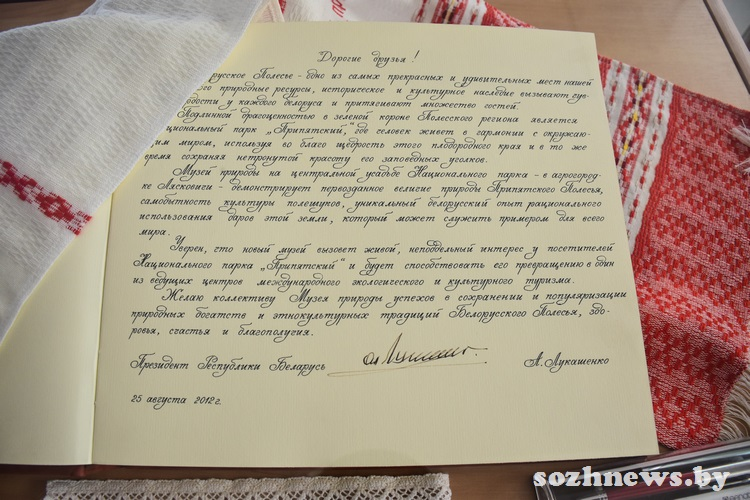 Дорогие друзья!
русское Полесье - одно из самых прекрасных и удивительных мест нашей
его природные ресурсы, историческое и культурное наследие вызывают чув-
дости у каждого белоруса и притягивают множество гостей.
Подлинной драгоценностью в зеленой короне Полесского региона является
циональный парк „Припятский“, где человек живет в гармонии с окружаю-
щим миром, используя во благо щедрость этого плодородного края и в то же
время сохраняя нетронутой красоту его заповедных уголков.
Музей природы на центральной усадьбе Национального парка - в агрогород-
ке Лясковичи - демонстрирует первозданное величие природы Припятского Полесья,
самобытность культуры полешуков, уникальный белорусский опыт рационального
использования даров этой земли, который может служить примером для всего
мира.
Уверен, что новый музей вызовет живой, неподдельный интерес у посетителей
Национального парка „Припятский“ и будет способствовать его превращению в один
из ведущих центров международного экологического и культурного туризма.
Желаю коллективу Музея природы успехов в сохранении и популяризации
природных богатств и этнокультурных традиций Белорусского Полесья, здо-
ровья, счастья и благополучия.
Президент Республики Беларусь А. Лукашенко
25 августа 2012 г.
sozhnews.by